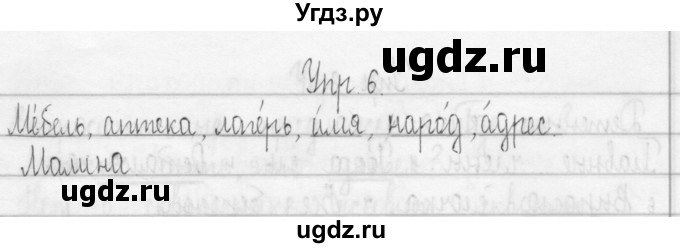 Угдз.ру
ugdz.ru
Упр 6.
Ме́бель, аптека, лаге́рь, и́мя, наро́д, а́дрес.
Малина
ugdz.ru
ugdz.ru